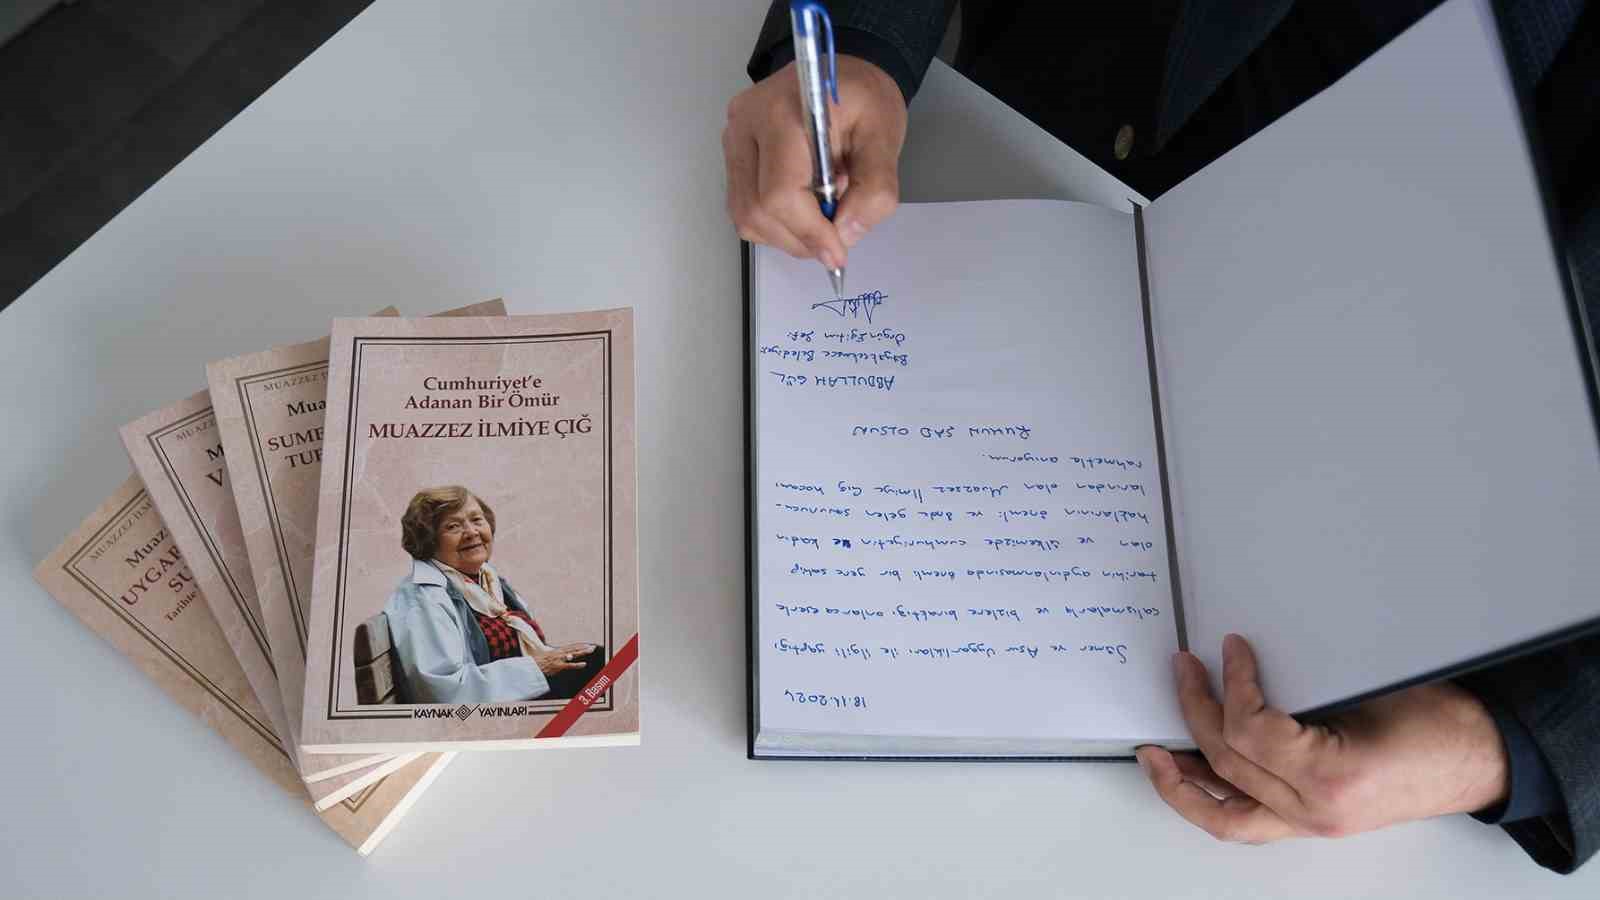 Cumhuriyet'e
Adanan Bir Ömür
MUAZZEZ İLMİYE ÇIĞ
3. Basım
KAYNAK YAYINLARI
MUAZZEZ
Mua
SUME
TUF
MUAZZEZ
M
V
MUAZZEZ İLM
Muaz
UYGAR
SU
Tarihte
18.11.2024
Sümer ve Asur Uygarlıkları ile ilgili yaptığı
çalışmalarla ve bizlere bıraktığı onlarca eserle
tarihin aydınlanmasında önemli bir yere sahip
olan ve ülkemizde cumhuriyetin ve kadın
haklarının önemli ve önde gelen savunucu-
larından olan Muazzez İlmiye Çığ hocamı
rahmetle anıyorum.
RUHUN ŞAD OLSUN
ABDULLAH GÜL
Büyükçekmece Belediyesi
Örgün Eğitim Şefi